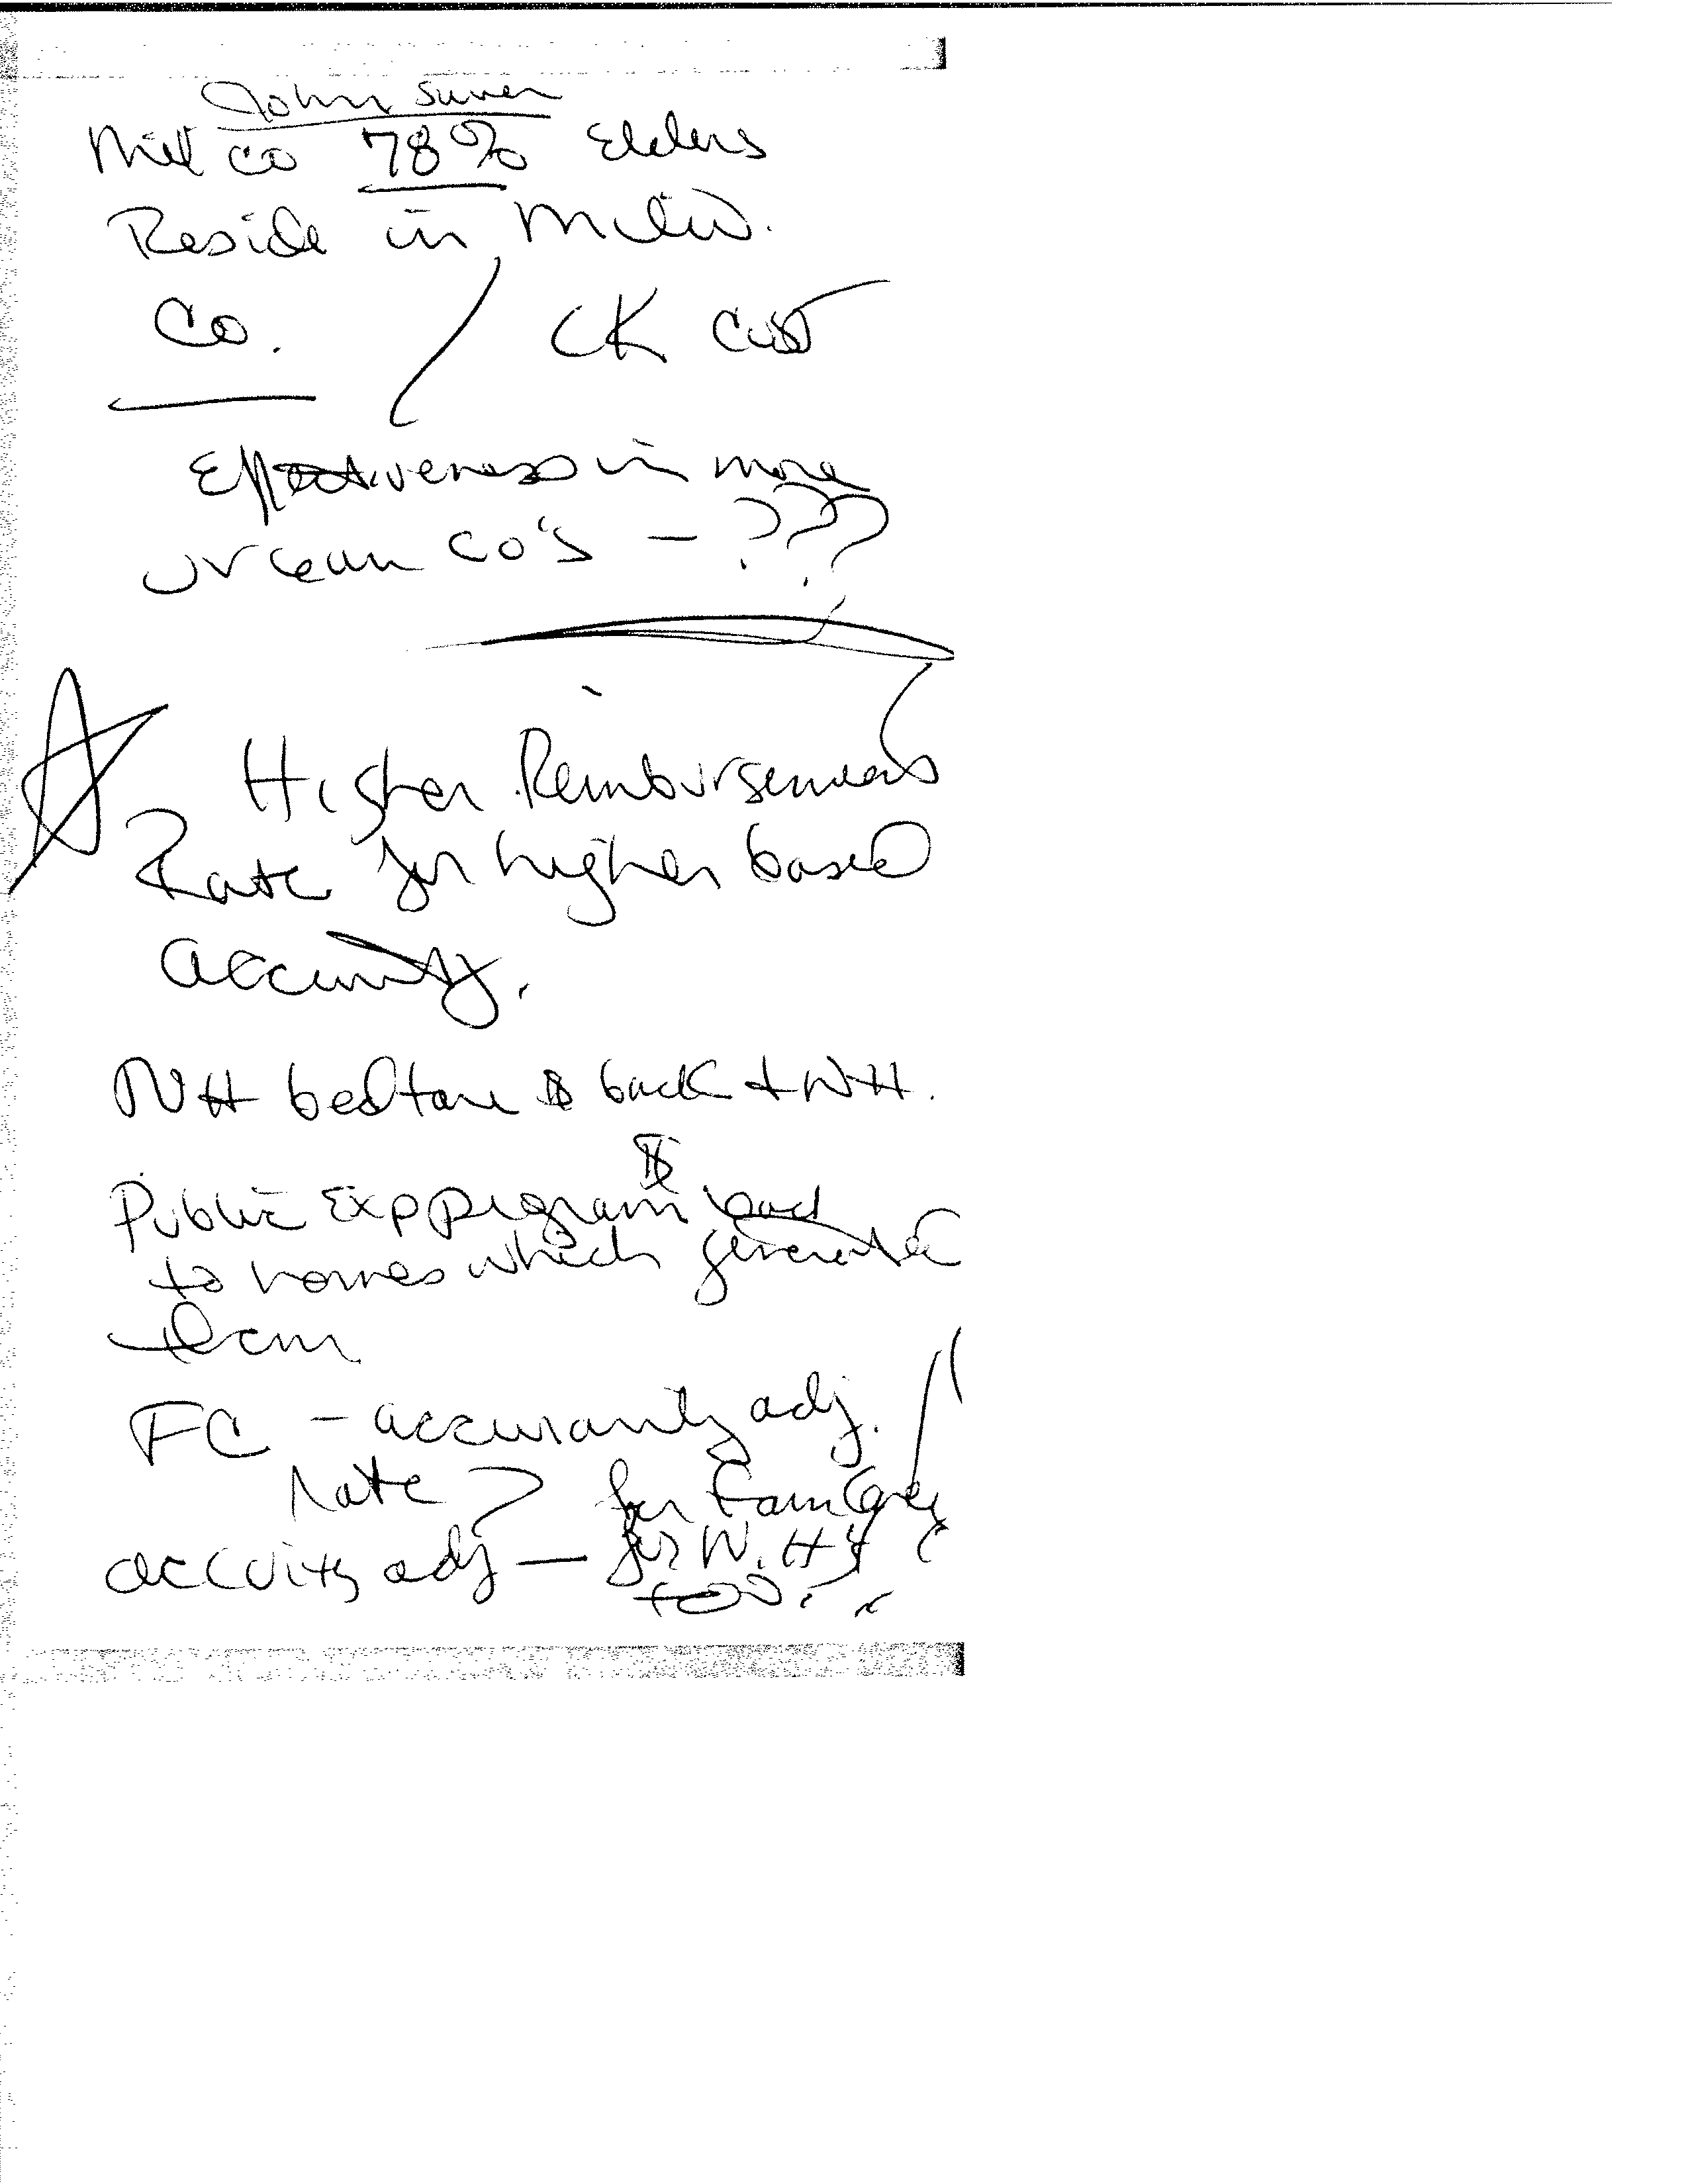 John
Mil Co 78% Elders
Reside in Milw.
Co. / CK Cost
Effectiveness in more
urban co's - ???
Higher Reimbursement
Rate for higher based
NH bed tax $ back to NH.
Public Exp program $ back
to homes which generated
them
FC - adj.
rate for Fam Care
accuity adj — for N.H's
too.